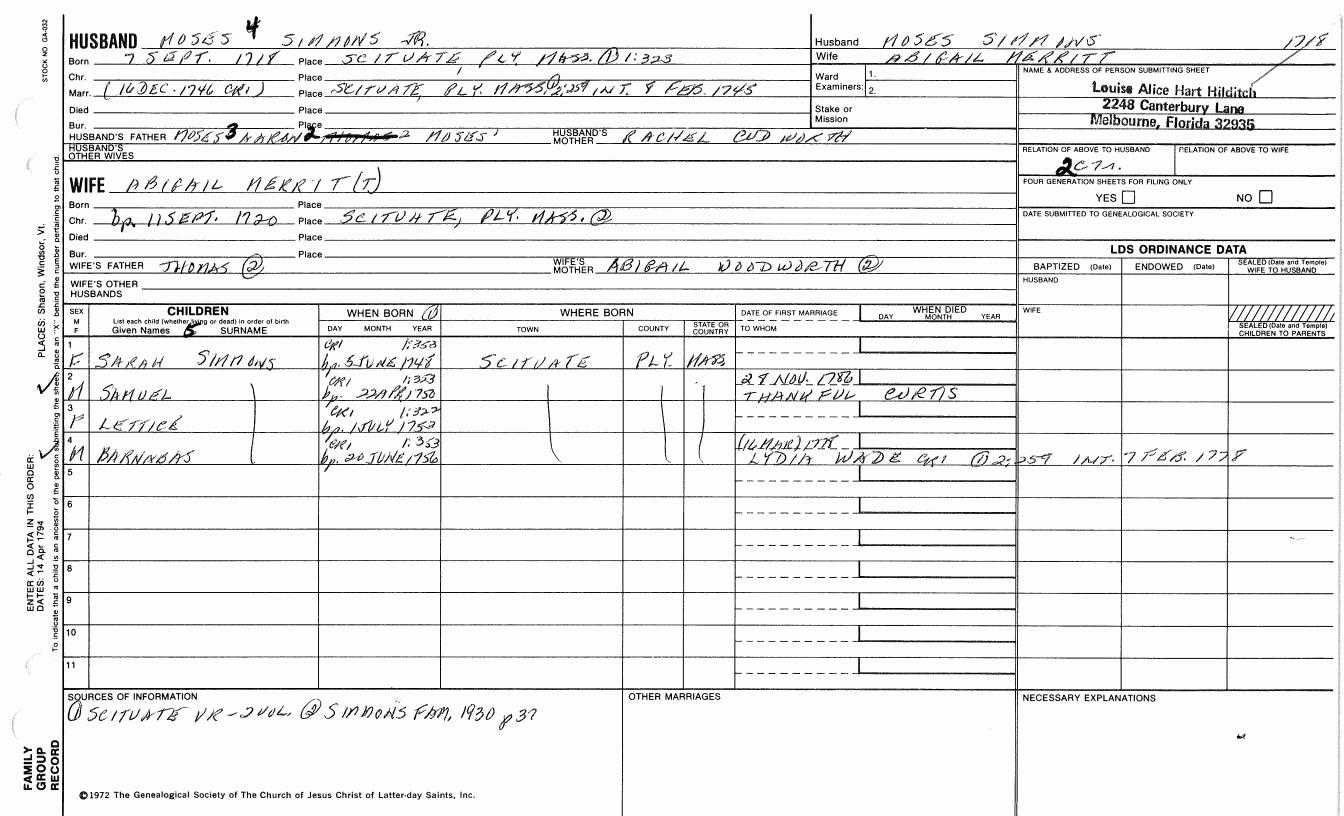 STOCK NO. GA-032
HUSBAND MOSES 4 SIMMONS JR.
Born 7 SEPT. 1718 Place SCITUATE, PLY. MASS. ① 1:323
Chr. Place
Marr. (16 DEC. 1746 CR1) Place SCITUATE, PLY. MASS. ① 2:259 INT. 8 FEB. 1745
Died Place
Bur. Place
HUSBAND'S FATHER MOSES 3 AARON 2 2 MOSES 1 HUSBAND'S MOTHER RACHEL CUDWORTH
HUSBAND'S OTHER WIVES
WIFE ABIGAIL MERRIT(T)
Born Place
Chr. bp. 11 SEPT. 1720 Place SCITUATE, PLY. MASS. ②
Died Place
Bur. Place
WIFE'S FATHER THOMAS ② WIFE'S MOTHER ABIGAIL WOODWORTH ②
WIFE'S OTHER HUSBANDS
Husband MOSES SIMMONS 1718
Wife ABIGAIL MERRITT
Ward Examiners: 1.
2.
Stake or Mission
NAME & ADDRESS OF PERSON SUBMITTING SHEET
Louise Alice Hart Hilditch
2248 Canterbury Lane
Melbourne, Florida 32935
RELATION OF ABOVE TO HUSBAND RELATION OF ABOVE TO WIFE
FOUR GENERATION SHEETS FOR FILING ONLY
YES NO
DATE SUBMITTED TO GENEALOGICAL SOCIETY
LDS ORDINANCE DATA
BAPTIZED (Date) ENDOWED (Date) SEALED (Date and Temple) WIFE TO HUSBAND
HUSBAND
WIFE
SEALED (Date and Temple) CHILDREN TO PARENTS
SEX M F CHILDREN WHEN BORN ① WHERE BORN DATE OF FIRST MARRIAGE WHEN DIED
List each child (whether living or dead) in order of birth
Given Names 5 SURNAME DAY MONTH YEAR TOWN COUNTY STATE OR COUNTRY TO WHOM DAY MONTH YEAR
1 CR1 1:353
F SARAH SIMMONS bp. 5 JUNE 1748 SCITUATE PLY. MASS
2 CR1 1:353 28 NOV. 1786
M SAMUEL bp. 22 APR 1750 THANKFUL CURTIS
3 CR1 1:322
F LETTICE bp. 1 JULY 1753
4 CR1 1:353 (16 MAR) 1778
M BARNABAS bp. 20 JUNE 1756 LYDIA WADE CR1 ① 2:259 INT. 7 FEB. 1778
5
6
7
8
9
10
11
SOURCES OF INFORMATION
① SCITUATE VR - 2 VOL. ② SIMMONS FAM, 1930 p 37
OTHER MARRIAGES
NECESSARY EXPLANATIONS
©1972 The Genealogical Society of The Church of Jesus Christ of Latter-day Saints, Inc.
FAMILY GROUP RECORD
ENTER ALL DATA IN THIS ORDER:
DATES: 14 Apr 1794
PLACES: Sharon, Windsor, Vt.
To indicate that a child is an ancestor of the person submitting the sheet, place an "X" behind the number pertaining to that child.